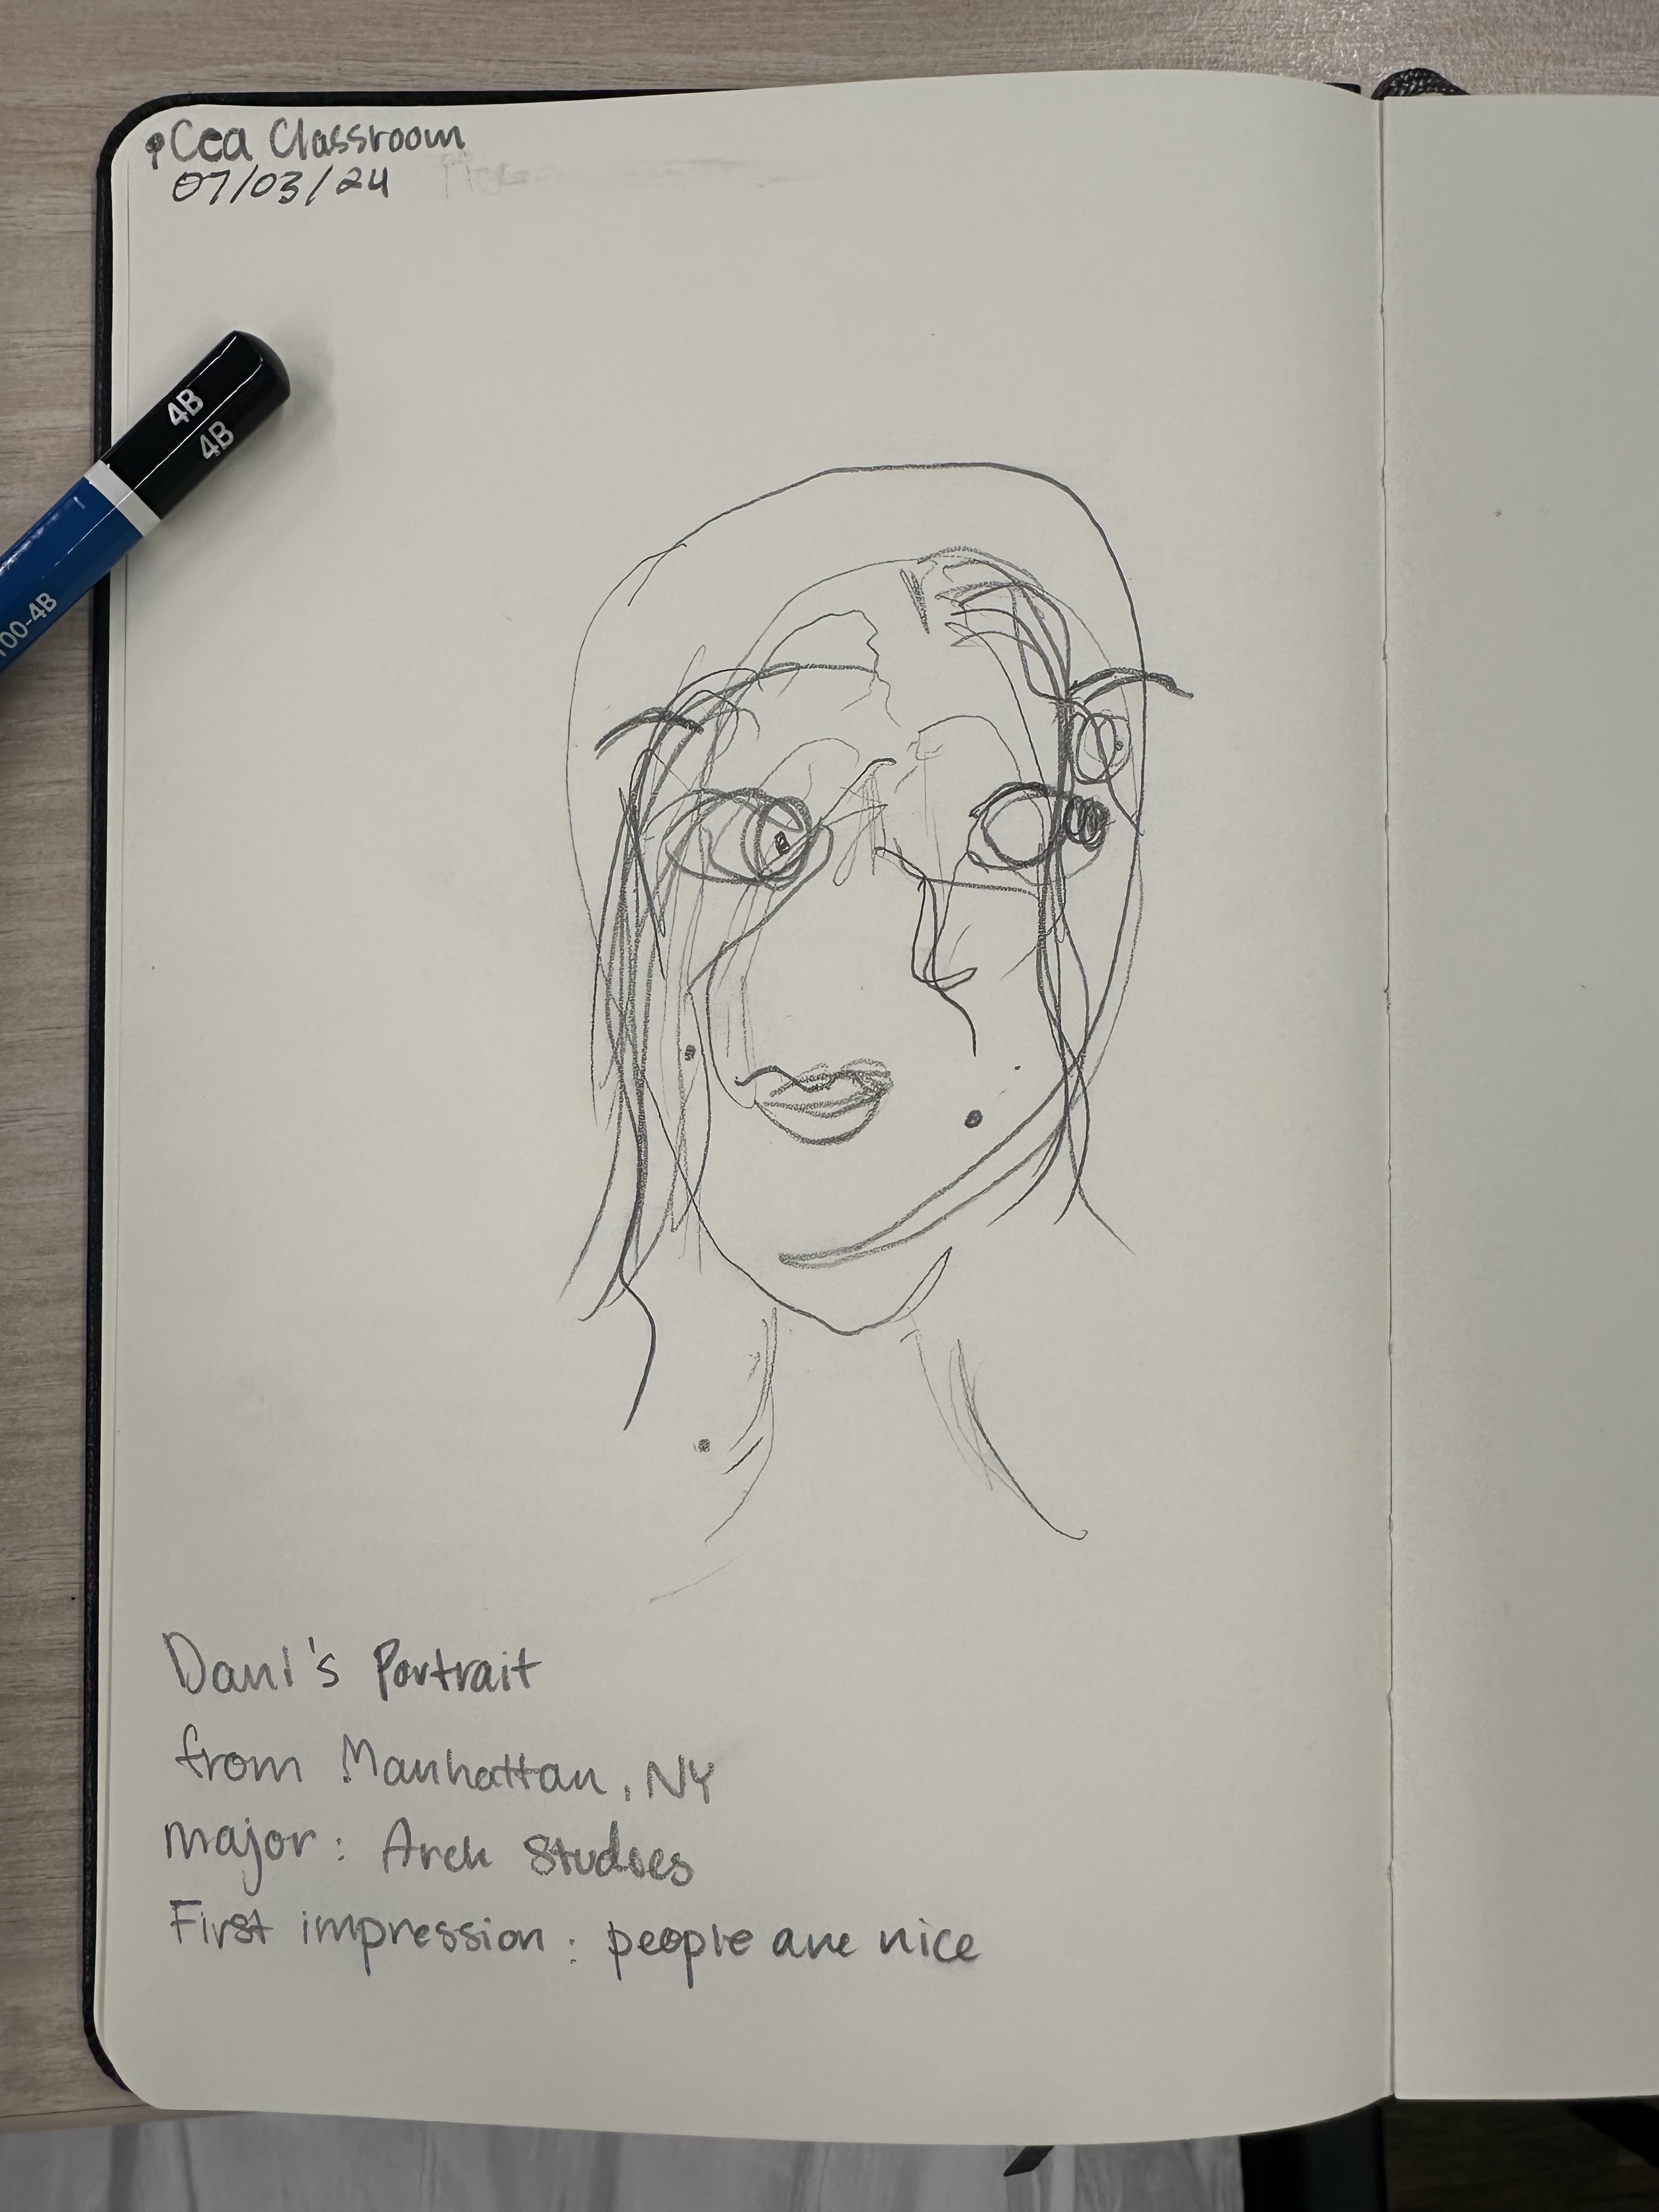 Cea Classroom
07/03/24
4B
4B
100-4B
Dani's Portrait
from Manhattan, NY
major: Arch Studies
First impression: people are nice